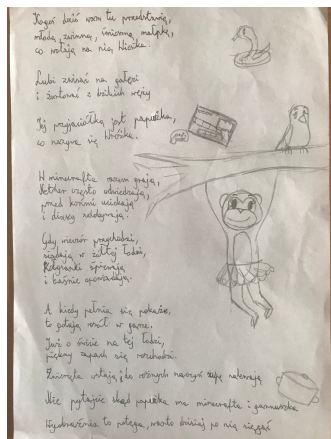 Kogoś dziś wam tu przedstawię,
młodą, zwinną, śmieszną małpkę,
co wołają na nią Wiórka.
Lubi zwisać na gałęzi
i żartować z dzikich węży
Jej przyjaciółką jest papużka,
co nazywa się Wróżka.
W minecrafta razem grają,
Nether często odwiedzają,
przed końmi uciekają
i diaxy zdobywają.
Gdy wieczór przychodzi,
siądają w żółtej łodzi,
Kołysanki śpiewają
i baśnie opowiadają.
A kiedy pełnia się pokaże,
to gotują rosół w garze,
Już o świcie na tej łodzi,
piękny zapach się rozchodzi.
Zwierzęta wstają, do różnych naczyń zupę nalewają
Nie pytajcie skąd papużka ma minecrafta i garnuszka
Wyobraźnia to potęga, warto dzisiaj po nią sięgać